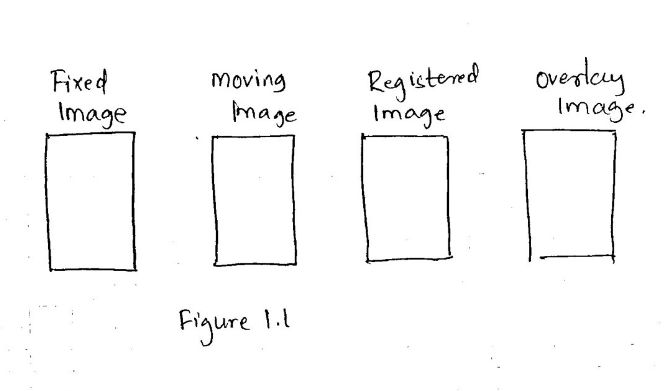 Fixed
Image
moving
Image
Registered
Image
overlay
Image.
Figure 1.1